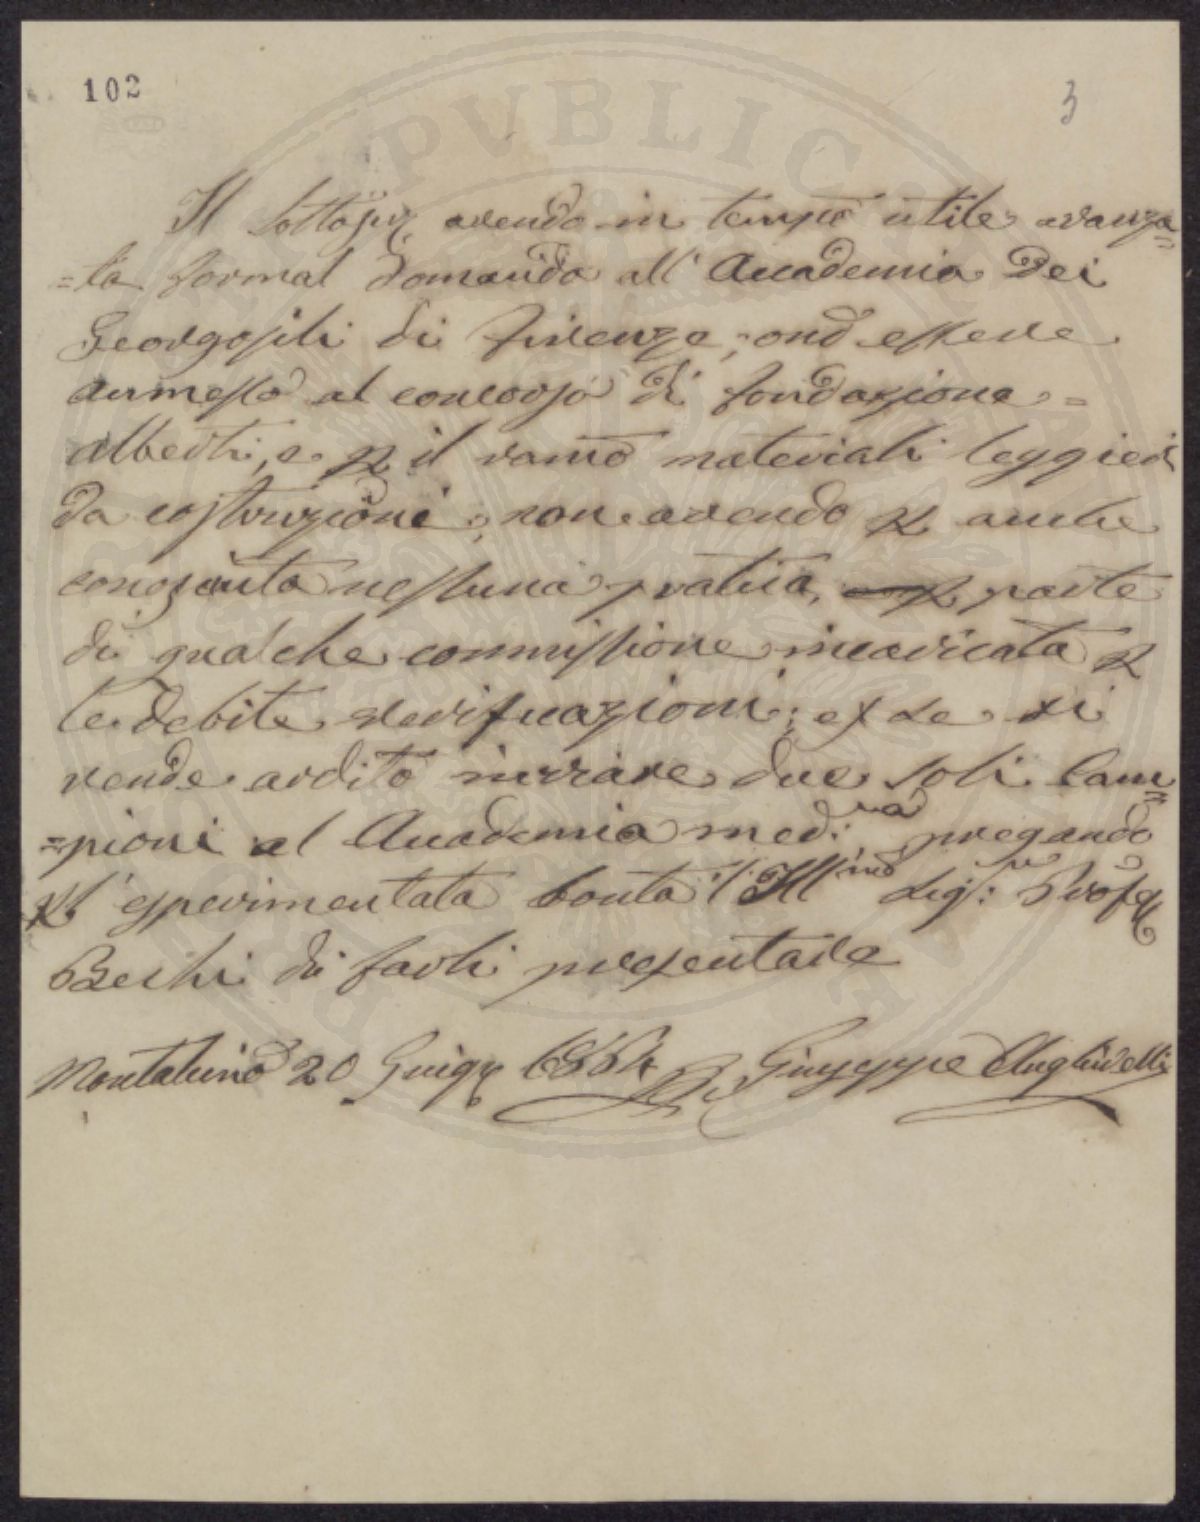 102
3
Il Sottosc. avendo in tempo utile avanza=
=ta formal domanda all' Accademia Dei
Georgofili di Firenze, ond essere
ammesso al concorso di fondazione =
Alberti, e p il ramo materiali leggieri
da costruzioni; non avendo p anche
conosciuta nessuna pratica, parte
di qualche commissione incaricata p
le debite verificazioni; es se si
rende ardito inviare due soli Cam=
=pioni al Accademia med:ma pregando
p l' esperimentata bontà l' Ill.mo Sig:re Profes
Bechi di farli presentare
Montalcino 20 Giug 1864 Giuseppe